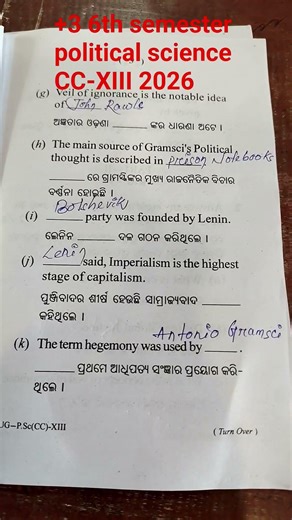 +3 6th semester
political science
CC-XIII 2026
(g) Veil of ignorance is the notable idea
of John Rawls
ଅଜ୍ଞତାର ଓଢ଼ଣା ______ ଙ୍କର ଧାରଣା ଅଟେ ।
(h) The main source of Gramsci's Political
thought is described in prison Notebooks
______ ରେ ଗ୍ରାମସ୍କିଙ୍କର ମୁଖ୍ୟ ରାଜନୈତିକ ବିଚାର
ବର୍ଣ୍ଣନା ହୋଇଛି ।
Bolshevik
(i) ______ party was founded by Lenin.
ଲେନିନ ______ ଦଳ ଗଠନ କରିଥିଲେ ।
Lenin
(j) ______ said, Imperialism is the highest
stage of capitalism.
ପୁଞ୍ଜିବାଦର ଶୀର୍ଷ ହେଉଛି ସାମ୍ରାଜ୍ୟବାଦ ______
କହିଥିଲେ ।
Antonio Gramsci
(k) The term hegemony was used by ______.
______ ପ୍ରଥମେ ଆଧିପତ୍ୟ ସଂଜ୍ଞାର ପ୍ରୟୋଗ କରି-
ଥିଲେ ।
UG–P.Sc(CC)-XIII
(Turn Over)